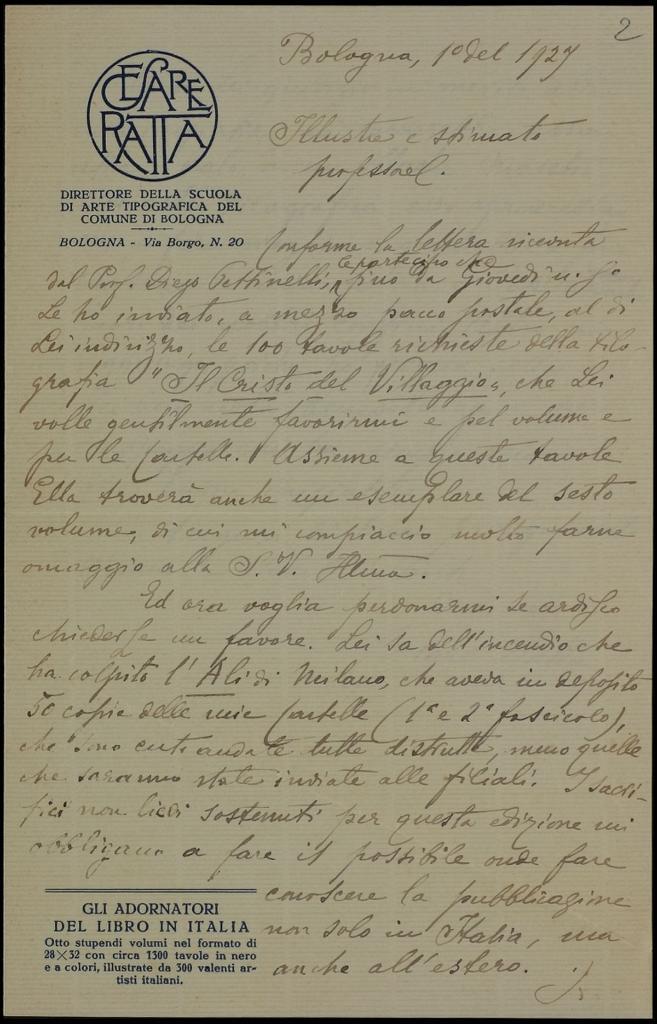 2
Bologna, 1º del 1927
CESARE
RATTA
DIRETTORE DELLA SCUOLA
DI ARTE TIPOGRAFICA DEL
COMUNE DI BOLOGNA
BOLOGNA - Via Borgo, N. 20
Illustre e stimato
professore.
Conforme la lettera ricevuta
Le partecipo che
dal Prof. Diego Pettinelli, fino da Giovedì u. s.
Le ho inviato, a mezzo pacco postale, al di
Lei indirizzo, le 100 tavole richieste della xilo-
grafia "Il Cristo del Villaggio", che Lei
volle gentilmente favorirmi e pel volume e
per le Cartelle. Assieme a queste tavole
Ella troverà anche un esemplare del sesto
volume, di cui mi compiaccio molto farne
omaggio alla S. V. Ill.ma.
Ed ora voglia perdonarmi se ardisco
chiederLe un favore. Lei sa dell'incendio che
ha colpito l'Ali di Milano, che aveva in deposito
50 copie delle mie Cartelle (1ª e 2ª fascicolo),
che sono andate tutte distrutte, meno quelle
che saranno state inviate alle filiali. I sacri-
fici non lievi sostenuti per questa edizione mi
obbligano a fare il possibile onde fare
conoscere la pubblicazione
non solo in Italia, ma
anche all'estero. ./.
GLI ADORNATORI
DEL LIBRO IN ITALIA
Otto stupendi volumi nel formato di
28×32 con circa 1300 tavole in nero
e a colori, illustrate da 300 valenti ar-
tisti italiani.